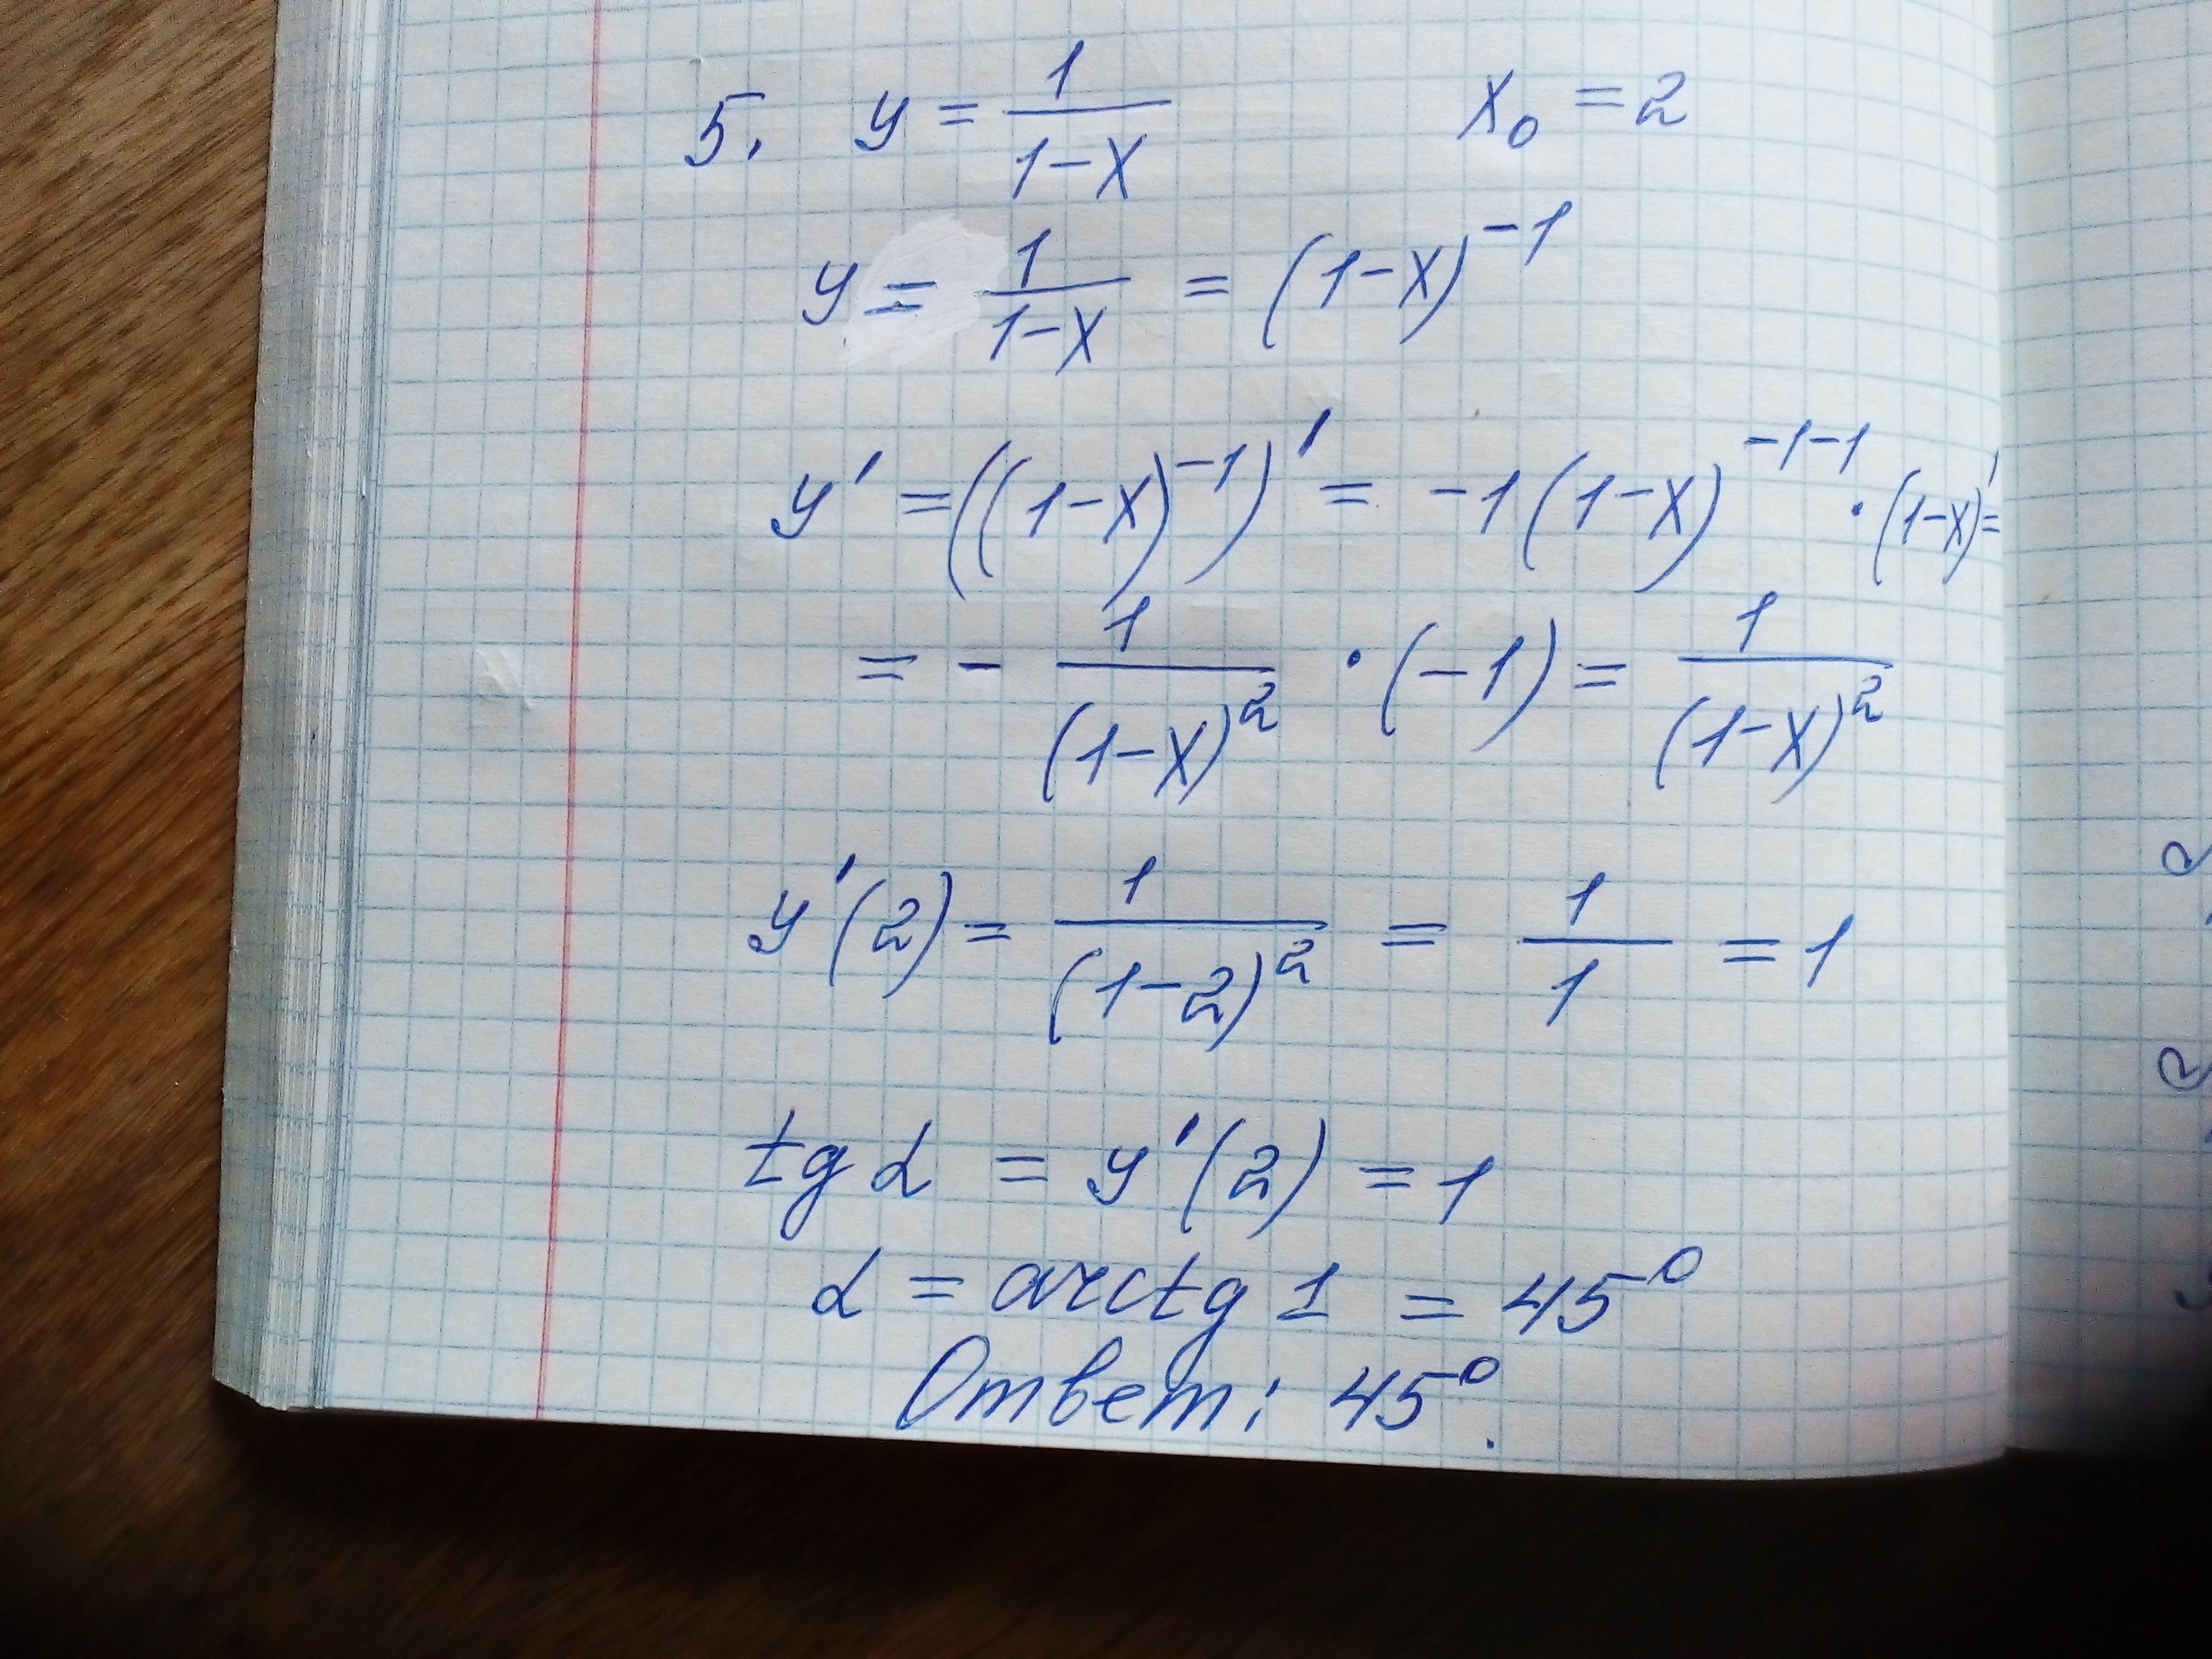 5. y = 1/(1-x)    x₀ = 2
y = 1/(1-x) = (1-x)⁻¹
y' = ((1-x)⁻¹)' = -1(1-x)⁻¹⁻¹ · (1-x)' =
= - 1/(1-x)² · (-1) = 1/(1-x)²
y'(2) = 1/(1-2)² = 1/1 = 1
tg α = y'(2) = 1
α = arctg 1 = 45°
Ответ: 45°.